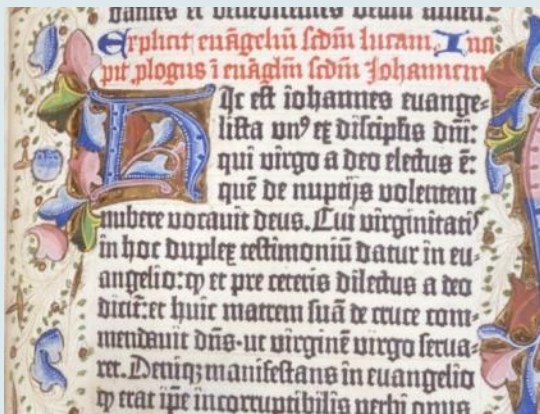 dantes et benedicentes deum amen.
Explicit euāgeliū scdm̄ lucam. Inci
pit ꝓlogus ī euāgliū scdm̄ Johannem
Hic est iohannes euange-
lista vnꝰ ex discipłis dn̄i:
qui virgo a deo electus ē:
quē de nuptijs volentem
nubere vocauit deus. Cui virginitatꝭ
in hoc duplex testimoniū datur in eu-
angelio: ꝙ et pre ceteris dilectus a deo
dicit̄: et huic matrem suā de cruce com-
mendauit dn̄s. ut virginē virgo serua-
ret. Deniqꝫ manifestans in euangelio
ꝙ erat ip̄e incorruptibilis verbi opus